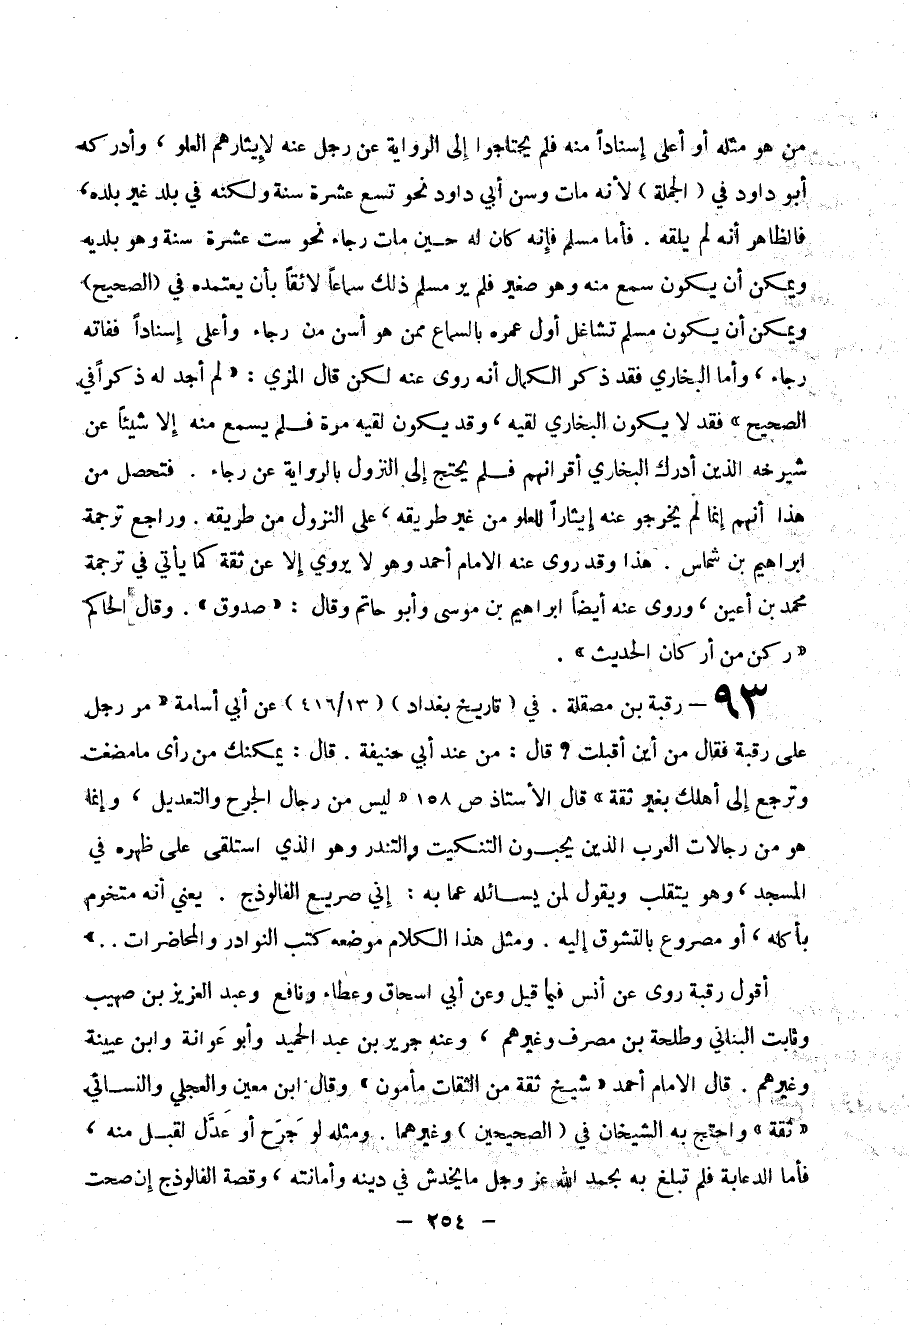 من هو مثله أو أعلى إسناداً منه فلم يحتاجوا إلى الرواية عن رجل عنه لإيثارهم العلو ، وأدركه
أبو داود في ( الجملة ) لأنه مات وسن أبي داود نحو تسع عشرة سنة ولكنه في بلد غير بلده،
فالظاهر أنه لم يلقه . فأما مسلم فإنه كان له حين مات رجاء نحو ست عشرة سنة وهو بلديه
ويمكن أن يكون سمع منه وهو صغير فلم ير مسلم ذلك سماعاً لائقاً بأن يعتمده في (الصحيح)
ويمكن أن يكون مسلم تشاغل أول عمره بالسماع ممن هو أسن من رجاء وأعلى إسناداً ففاته
رجاء ، وأما البخاري فقد ذكر الكمال أنه روى عنه لكن قال المزي : « لم أجد له ذكراً في
الصحيح » فقد لا يكون البخاري لقيه ، وقد يكون لقيه مرة فلم يسمع منه إلا شيئاً عن
شيرخه الذين أدرك البخاري أقرانهم فلم يحتج إلى النزول بالرواية عن رجاء . فتحصل من
هذا أنهم إنما لم يخرجو عنه إيثاراً للعلو من غير طريقه ، على النزول من طريقه . وراجع ترجمة
ابراهيم بن شماس . هذا وقد روى عنه الامام أحمد وهو لا يروي إلا عن ثقة كما يأتي في ترجمة
محمد بن أعين ، وروى عنه أيضاً ابراهيم بن موسى وأبو حاتم وقال : « صدوق » . وقال الحاكم
« ركن من أركان الحديث » .
٩٣ – رقبة بن مصقلة . في ( تاريخ بغداد ) ( ٤١٦/١٣ ) عن أبي أسامة « مر رجل
على رقبة فقال من أين أقبلت ? قال : من عند أبي حنيفة . قال : يمكنك من رأى مامضغت
وترجع إلى أهلك بغير ثقة » قال الأستاذ ص ١٥٨ « ليس من رجال الجرح والتعديل ، وإنما
هو من رجالات العرب الذين يحبون التنكيت والتندر وهو الذي استلقى على ظهره في
المسجد ، وهو يتقلب ويقول لمن يسائله عما به : إني صريع الفالوذج . يعني أنه متخوم
بأكله ، أو مصروع بالتشوق إليه . ومثل هذا الكلام موضعه كتب النوادر والمحاضرات .. »
أقول رقبة روى عن أنس فيما قيل وعن أبي اسحاق وعطاء ونافع وعبد العزيز بن صهيب
وثابت البناني وطلحة بن مصرف وغيرهم ، وعنه جرير بن عبد الحميد وأبو عَوانة وابن عيينة
وغيرهم . قال الامام أحمد « شيخ ثقة من الثقات مأمون » وقال ابن معين والعجلي والنسائي
« ثقة » واحتج به الشيخان في ( الصحيحين ) وغيرهما . ومثله لو جَرَح أو عَدَّل لقبل منه ،
فأما الدعابة فلم تبلغ به بحمد الله عز وجل مايخدش في دينه وأمانته ، وقصة الفالوذج إن صحت
– ٢٥٤ –